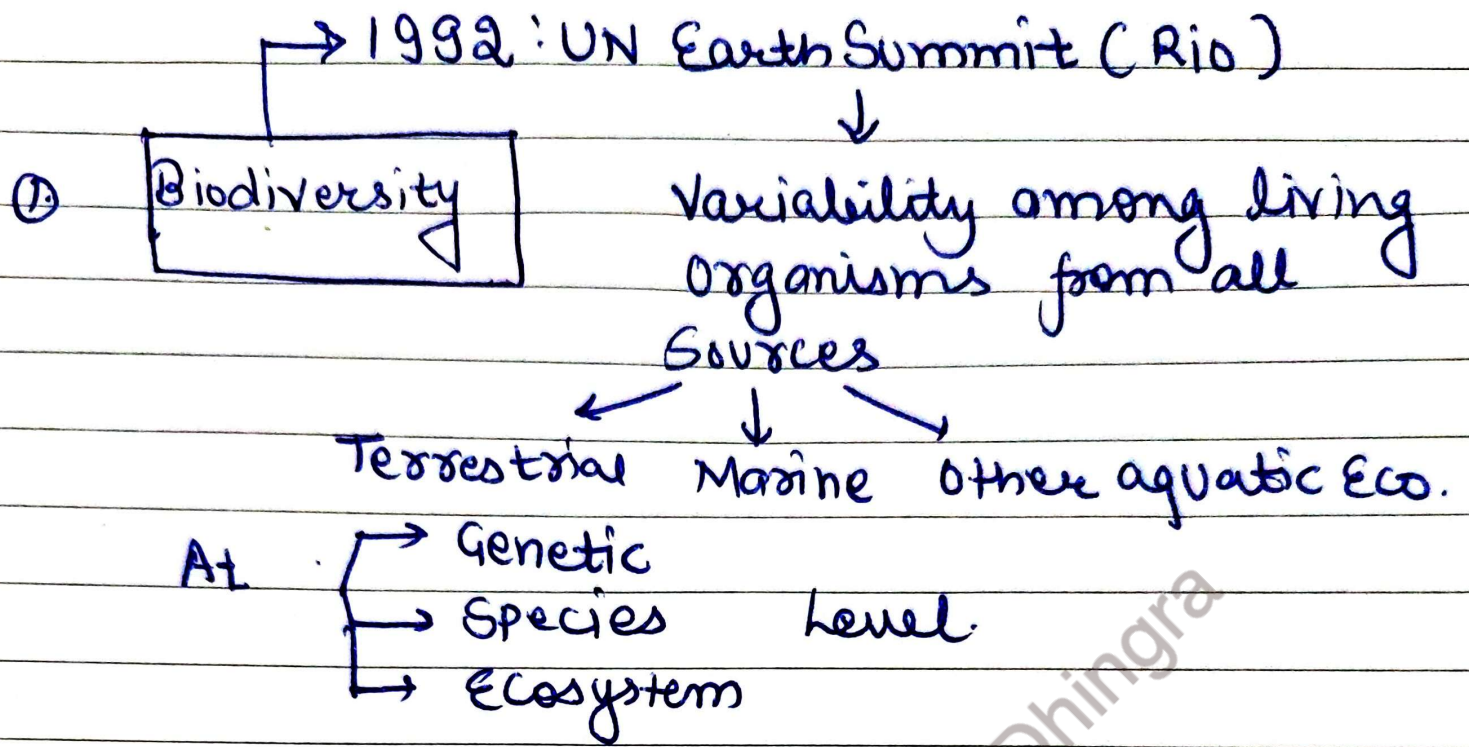 → 1992 : UN Earth Summit ( Rio )
↓
①. Biodiversity
Variability among living
organisms from all
Sources
↙ ↓ ↘
Terrestrial Marine Other aquatic Eco.
At → Genetic
→ Species Level.
→ Ecosystem
Dhingra